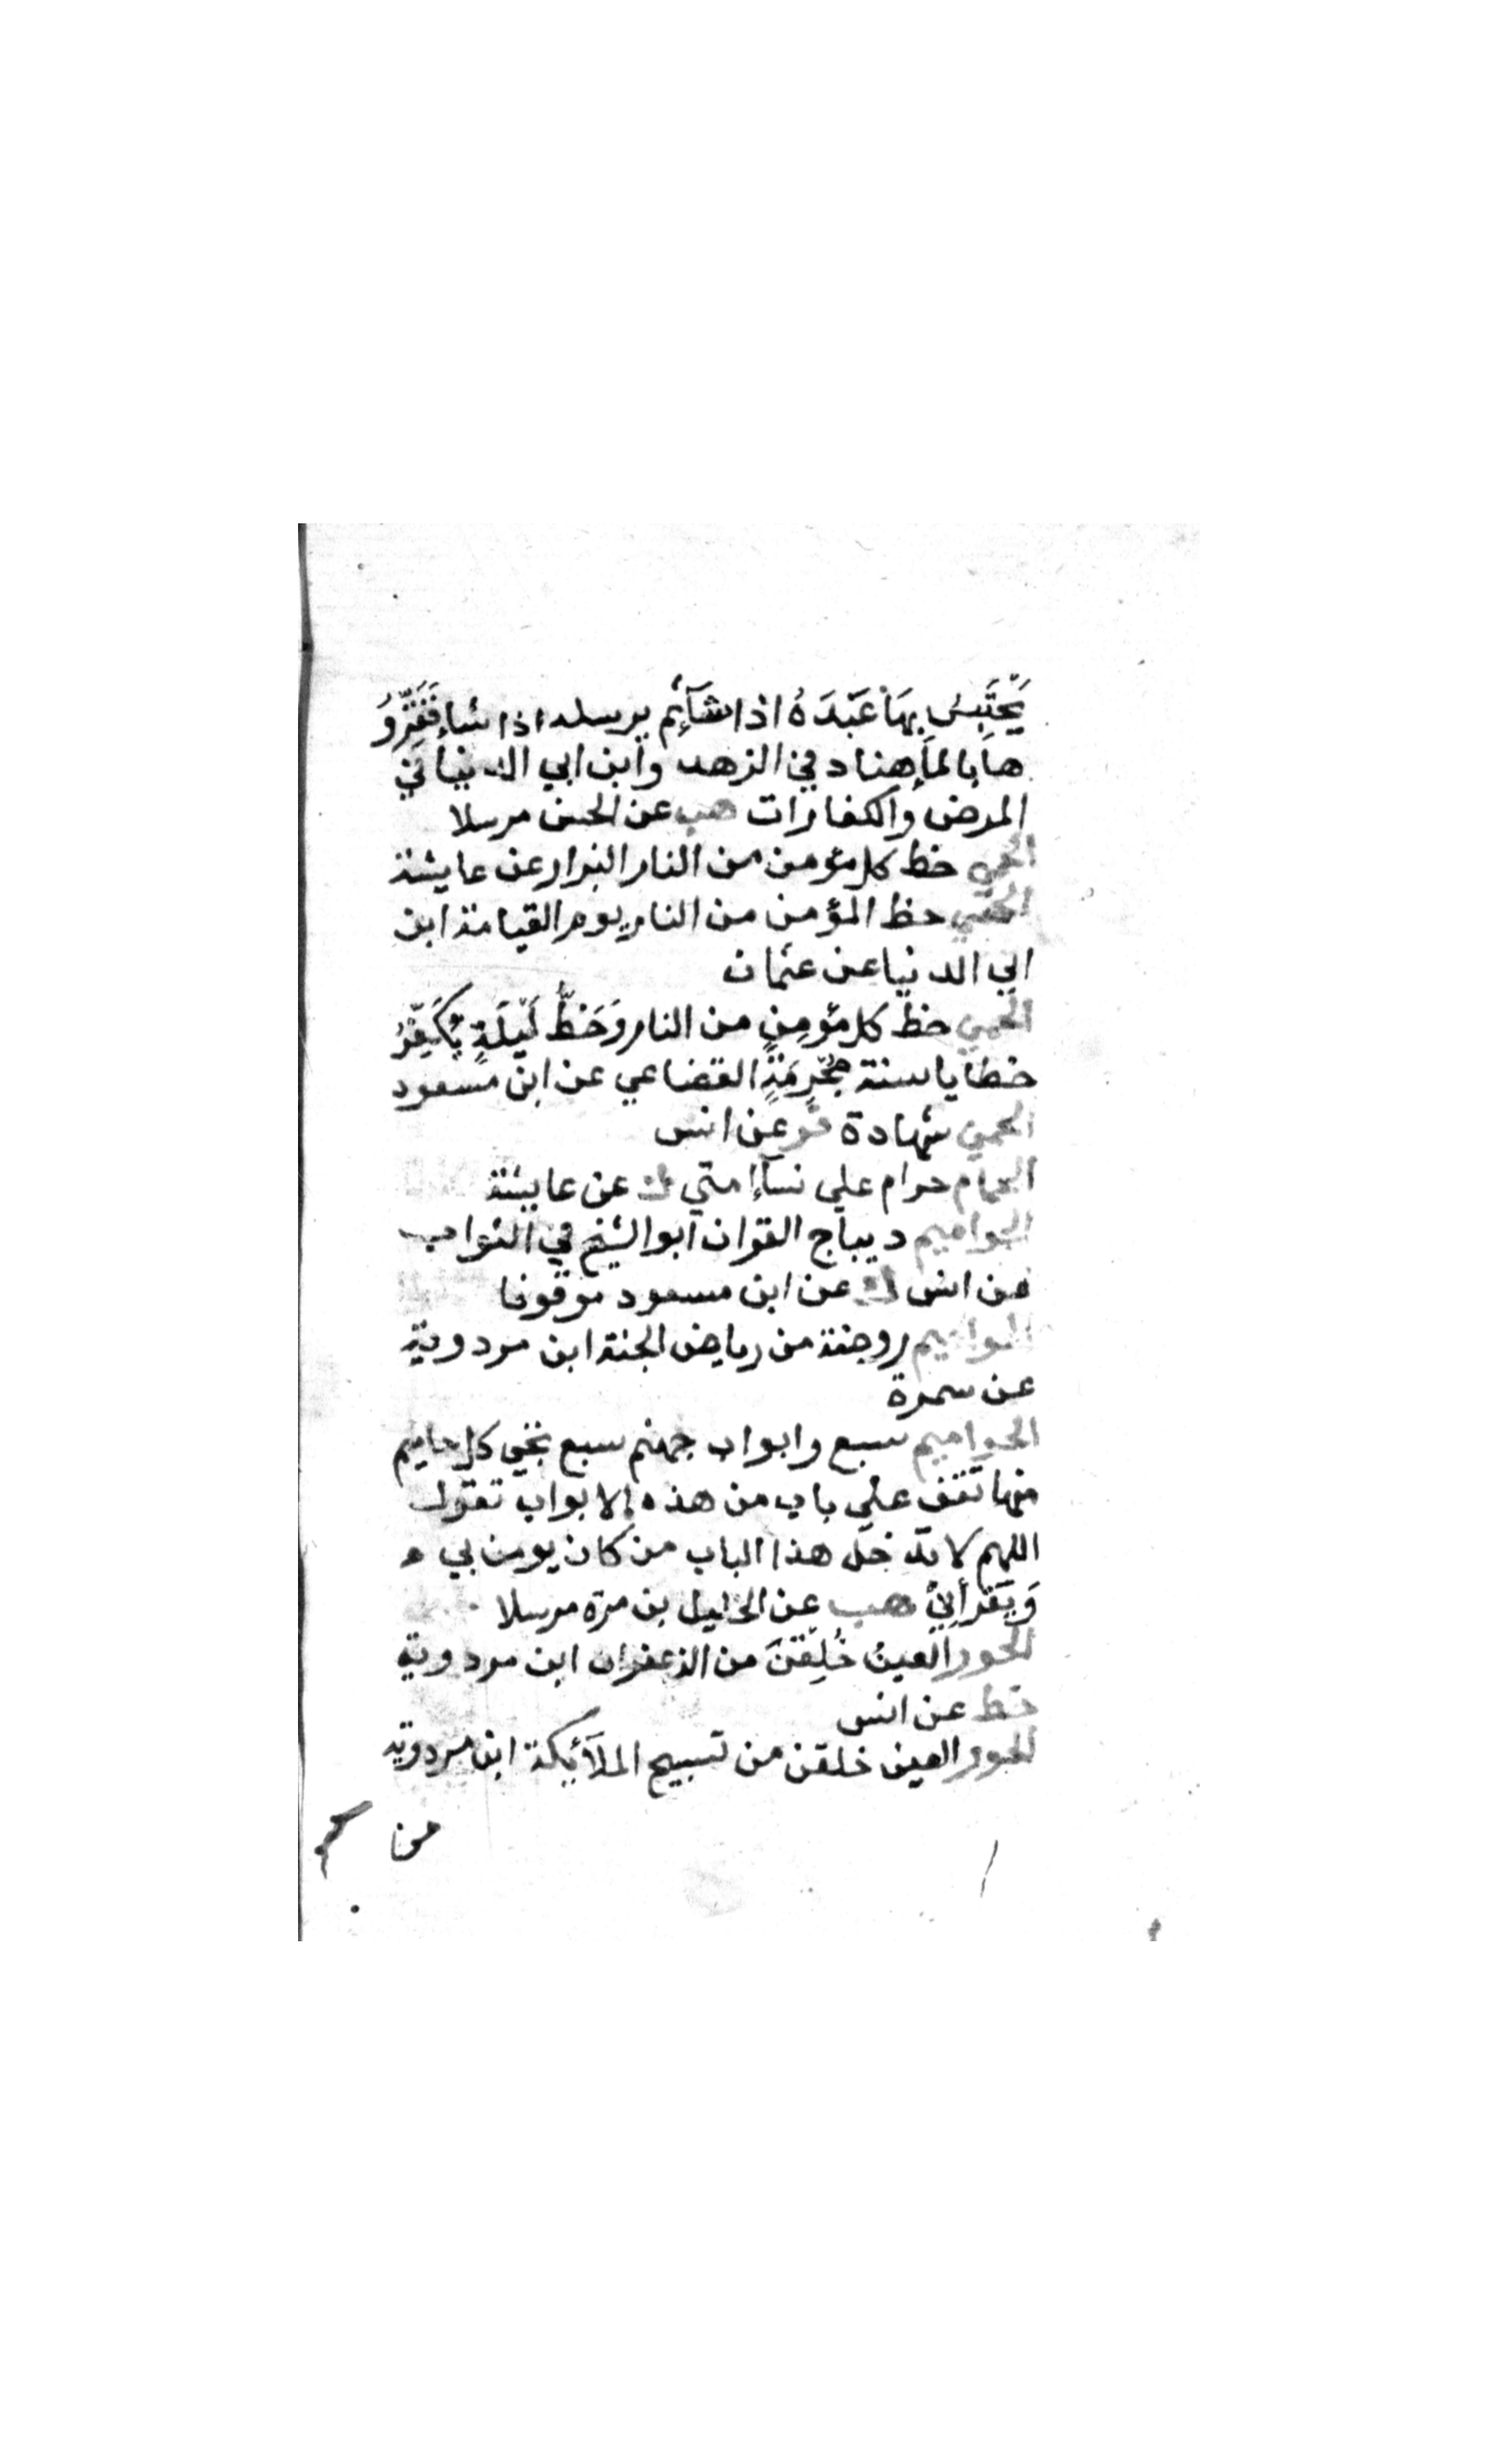 يَحْتَبِسُ بِهَا عَبْدَهُ اذا شآء ثم يرسله اذا شاء فَفَتِّرُو
ها بالمآء هناد في الزهد وابن ابي الدنيا في
المرض والكفارات هب عن الحسن مرسلا
الحمي حظ كل مؤمن من النار البزار عن عايشة
الحمي حظ المؤمن من النار يوم القيامة ابن
ابي الدنيا عن عثمان
الحمي حظ كل مؤمِنٍ من النار وَحَظُّ لَيْلَةٍ يُكَفِّرُ
خطايا سنة مُجَرَّمَةٍ القضاعي عن ابن مسعود
الحمي شهادة فر عن انس
الحمام حرام علي نسآء امتي ك عن عايشة
الحواميم ديباج القران ابو الشيخ في الثواب
عن انس ك عن ابن مسعود موقوفا
الحواميم روضة من رياض الجنة ابن مردوية
عن سمرة
الحواميم سبع وابواب جهنم سبع تجي كل حاميم
منها تقف علي باب من هذه الابواب تقول
اللهم لا تدخل هذا الباب من كان يومن بي و
وَيَقْرَأُنِيْ هب عن الخليل بن مرة مرسلا
الحور العين خُلِقْنَ من الزعفران ابن مردوية
خط عن انس
الحور العين خلقن من تسبيح الملآئكة ابن مردوية
عن